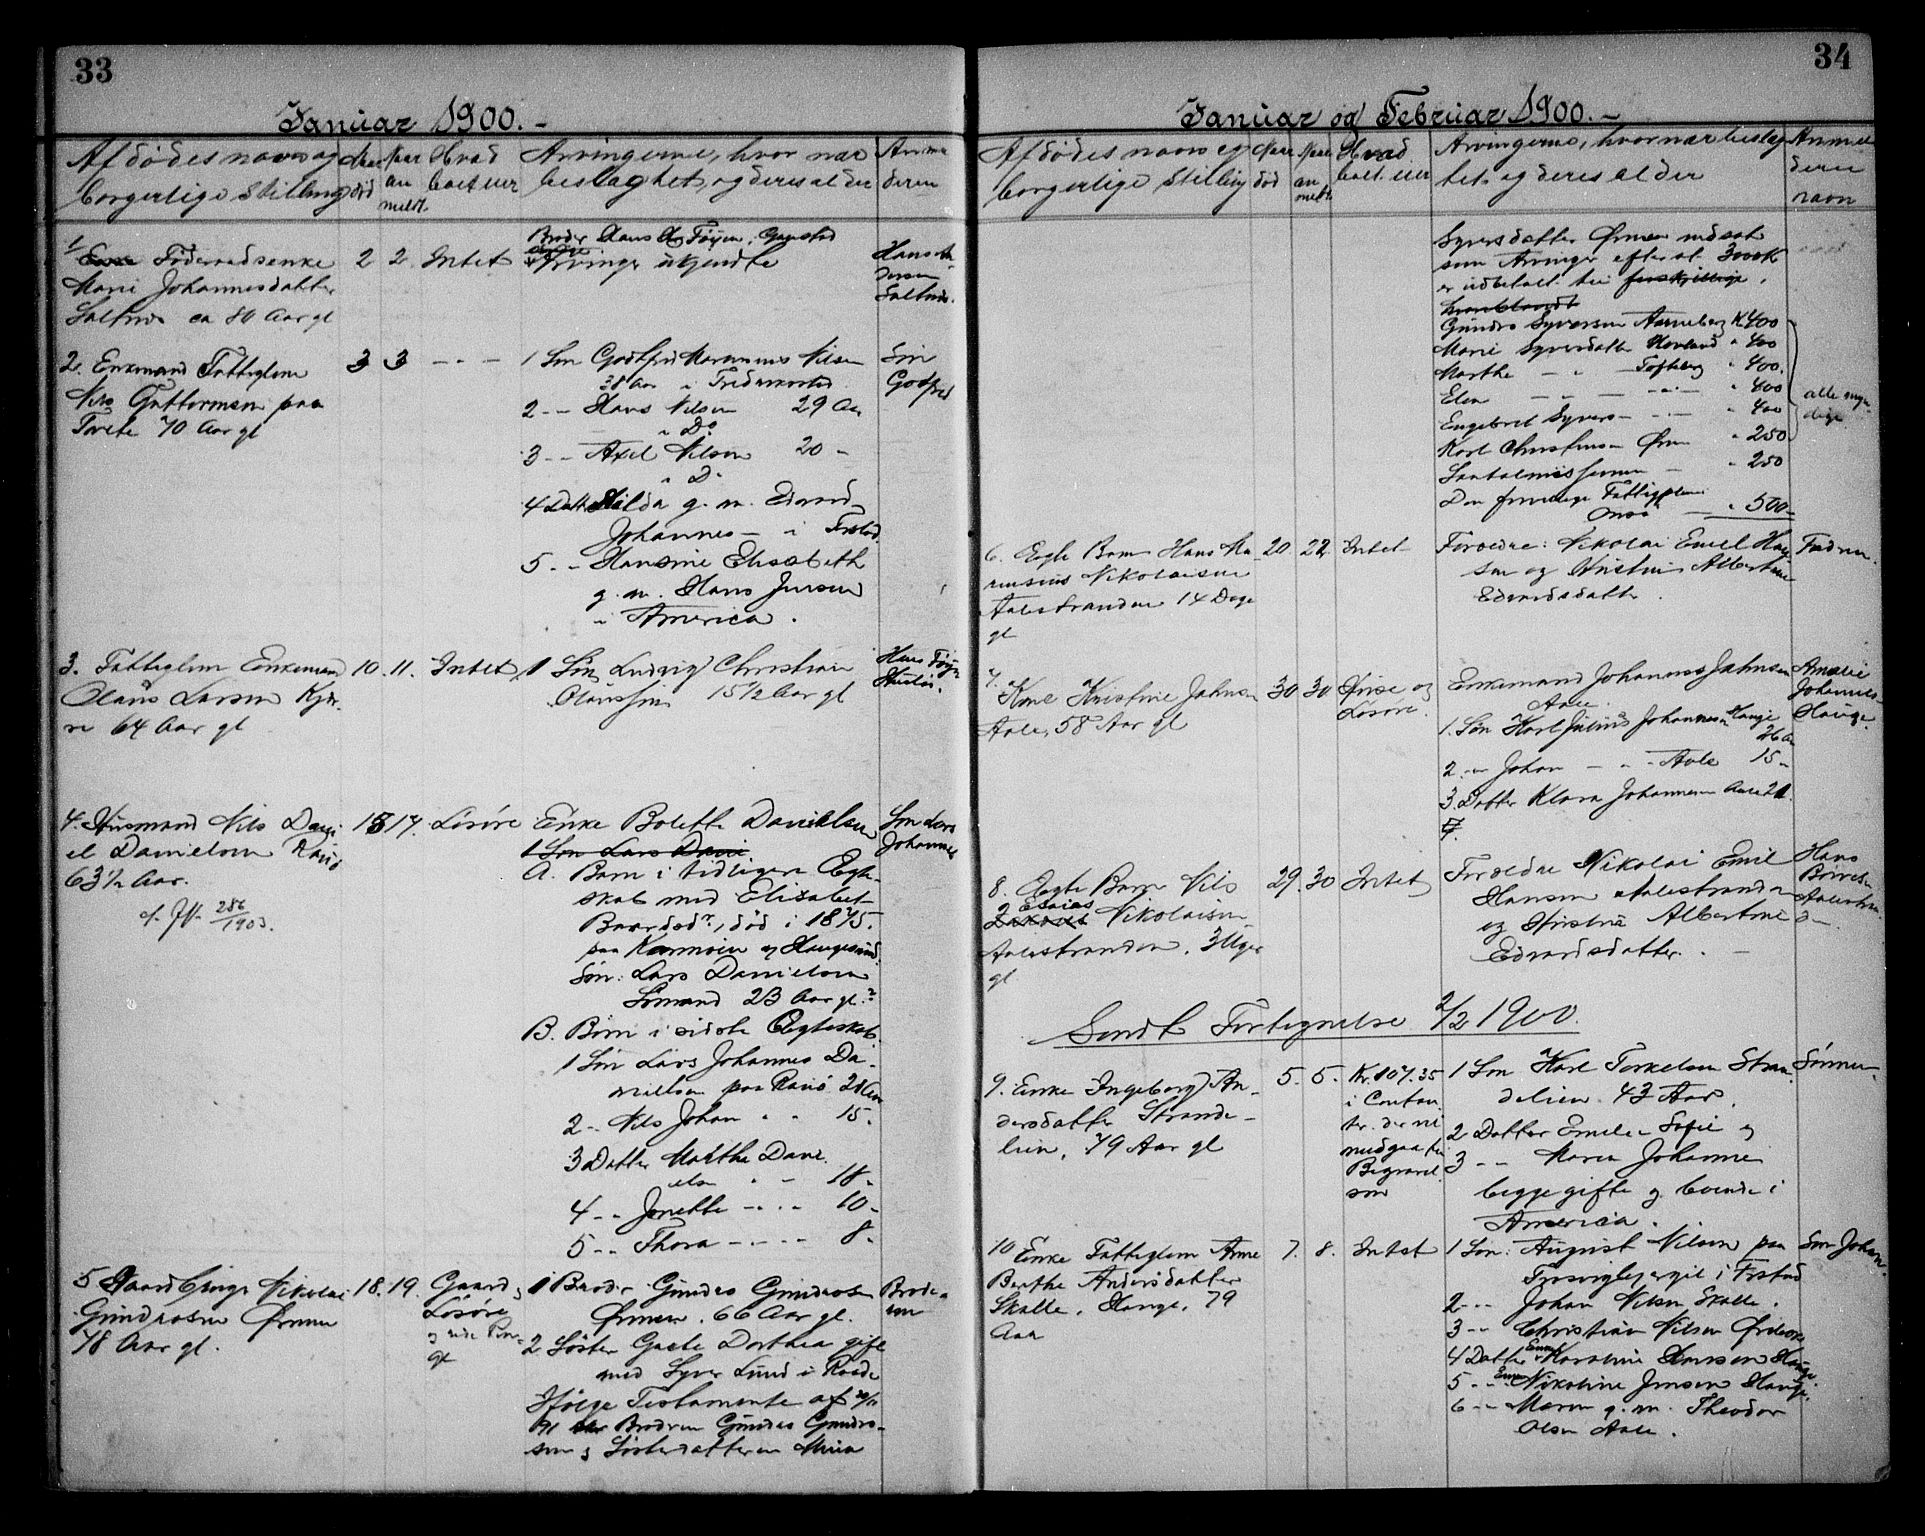 33
Januar 1900. -
Afdødes navn og borgerlige Stilling
Naar død
Naar anmeldt
Hvad boet eier
Arvingerne, hvor nær beslægtet, og deres alder
1
Føderaadsenke
Marie Johannesdatter
ca 80 Aar gl
2 2. Intet
Broder Hans
Arvinger ukjendte
2. Enkemand Fattiglem
Nils Guttormsen paa
Tvete 70 Aar gl
3 3 - " -
1 Søn Godtfred Marinius Nilsen
38 Aar i Fredriksstad
2 - - Hans Nilsen 29 Aar
" Do
3 - - Axel Nilsen 20 -
" D
4 Datt Hilda g. m. Edvard
Johannes - i Frstad.
5. - Hansine Elisabeth
g. m. Hans Jensen
i America.
Søn
Godfred
3. Fattiglem Enkemand
Olaus Larsen
64 Aar gl
10. 11. Intet
1 Søn Ludvig Christian
Olaussen 15 1/2 Aar gl
4. Husmand Nils Dani-
el Danielsen Kauø
63 1/2 Aar.
cfr. 286/1903.
17. Løsøre
Enke Bolette Danielsen
1 Søn Lars Dani
A. Barn i tidligere Egte-
skab med Elisabet
død i 1875.
paa Karmøen og Haugesund.
Søn: Lars Danielsen
Sømand 23 Aar gl.?
B. Børn i sidste Egteskab
1 Søn Lars Johannes Da-
nielsen paa Kauø 21 Aar
2 - - Nils Johan " " 15.
3 Datter Marthe Dani-
elsen " - 18 -
4 - - Jonette - " - 10 -
5 - - Thora - " - 8 -
Søn Lars
Johannes
5 Gaardbruger Nikolai
Gundersen Ørmen
78 Aar gl.
18. 19. Gaard,
Løsøre
1 Broder Gunder Gundersen
Ørmen. 66 Aar gl.
2 Søster Grete Dorthea gift
med Syver Lund i Raade
Ifølge Testamente af
Brodren Gunder Gunder-
sen og Søsterdatteren
Broderen
34
Januar og Februar 1900. -
Afdødes navn og borgerlige Stilling
Naar død
Naar anmeldt
Hvad boet eier
Arvingerne, hvor nær beslægtet og deres alder
Anmelderens navn
Syversdatter Ørmen indsat
som Arvinger efter at 3000 K
er udbetalt til forskjellige.
hvoriblandt
Gunder Syversen K. 400
Marie Syversdatter Hovland " 400
Marthe - " - Tofteberg " 400.
Elen - " - - " - " 400
Engebret Syvers - " - " 400
Karl Christensen Ørmen " 250
Santalmissionen - " 250
Den frivillige Fattigpleie
Onsø - " 500 -
alle myn-
dige
6. Egte Barn Hans Ma-
rensius Nikolaisen
Aalestranden 14 Dage
gl
20. 22. Intet
Forældre: Nikolai Emil Han-
sen og Kristine Albertine
Edvardsdatter.
Faderen.
7. Kone Kristine Jahnsen
Aale, 58 Aar gl
30 30 Huse og
Løsøre.
Enkemand Johannes Jahnsen
Aale.
1. Søn Karl Julius Johannesen Hauge
26 Aar
2. - - Johan - " - Aale 15 -
3. Datter Klara Johannesen Aale 21.
Amalie
Johannes-
Hauge.
8. Egte Barn Nils
Esaias Nikolaisen
Aalestranden. 3 Uger
gl.
29. 30 Intet
Forældre Nikolai Emil
Hansen Aalestranden
og Kristine Albertine
Edvardsdatter. -
Hans
Sendt Fortegnelse 2/2 1900
9. Enke Ingeborg An-
dersdatter Strande-
lien, 79 Aar gl
5. 5. Kr. 107.35
i Contan-
ter. der vil
medgaa til
Begravel-
sen
1 Søn Karl Torkelsen Stran-
delien. 43 Aar.
2 Datter Emilie Sofie og
3 - - Maren Johanne
begge gifte og boende i
America.
Sønnen.
10 Enke Fattiglem Anne
Berthe Andersdatter
Skalle, Hauge. 79
Aar
7. 8. Intet
1 Søn: August Nilsen paa
Trosvigbjerget i Frstad
2 - - Johan Nilsen Skalle.
3 - - Christian Nilsen
4 Datter Enke Karoline Hansen Hauge.
5 - - Enke Nikoline Jensen Hauge.
6 - - Maren g. m. Theodor
Olsen Aale.
Søn Johan.